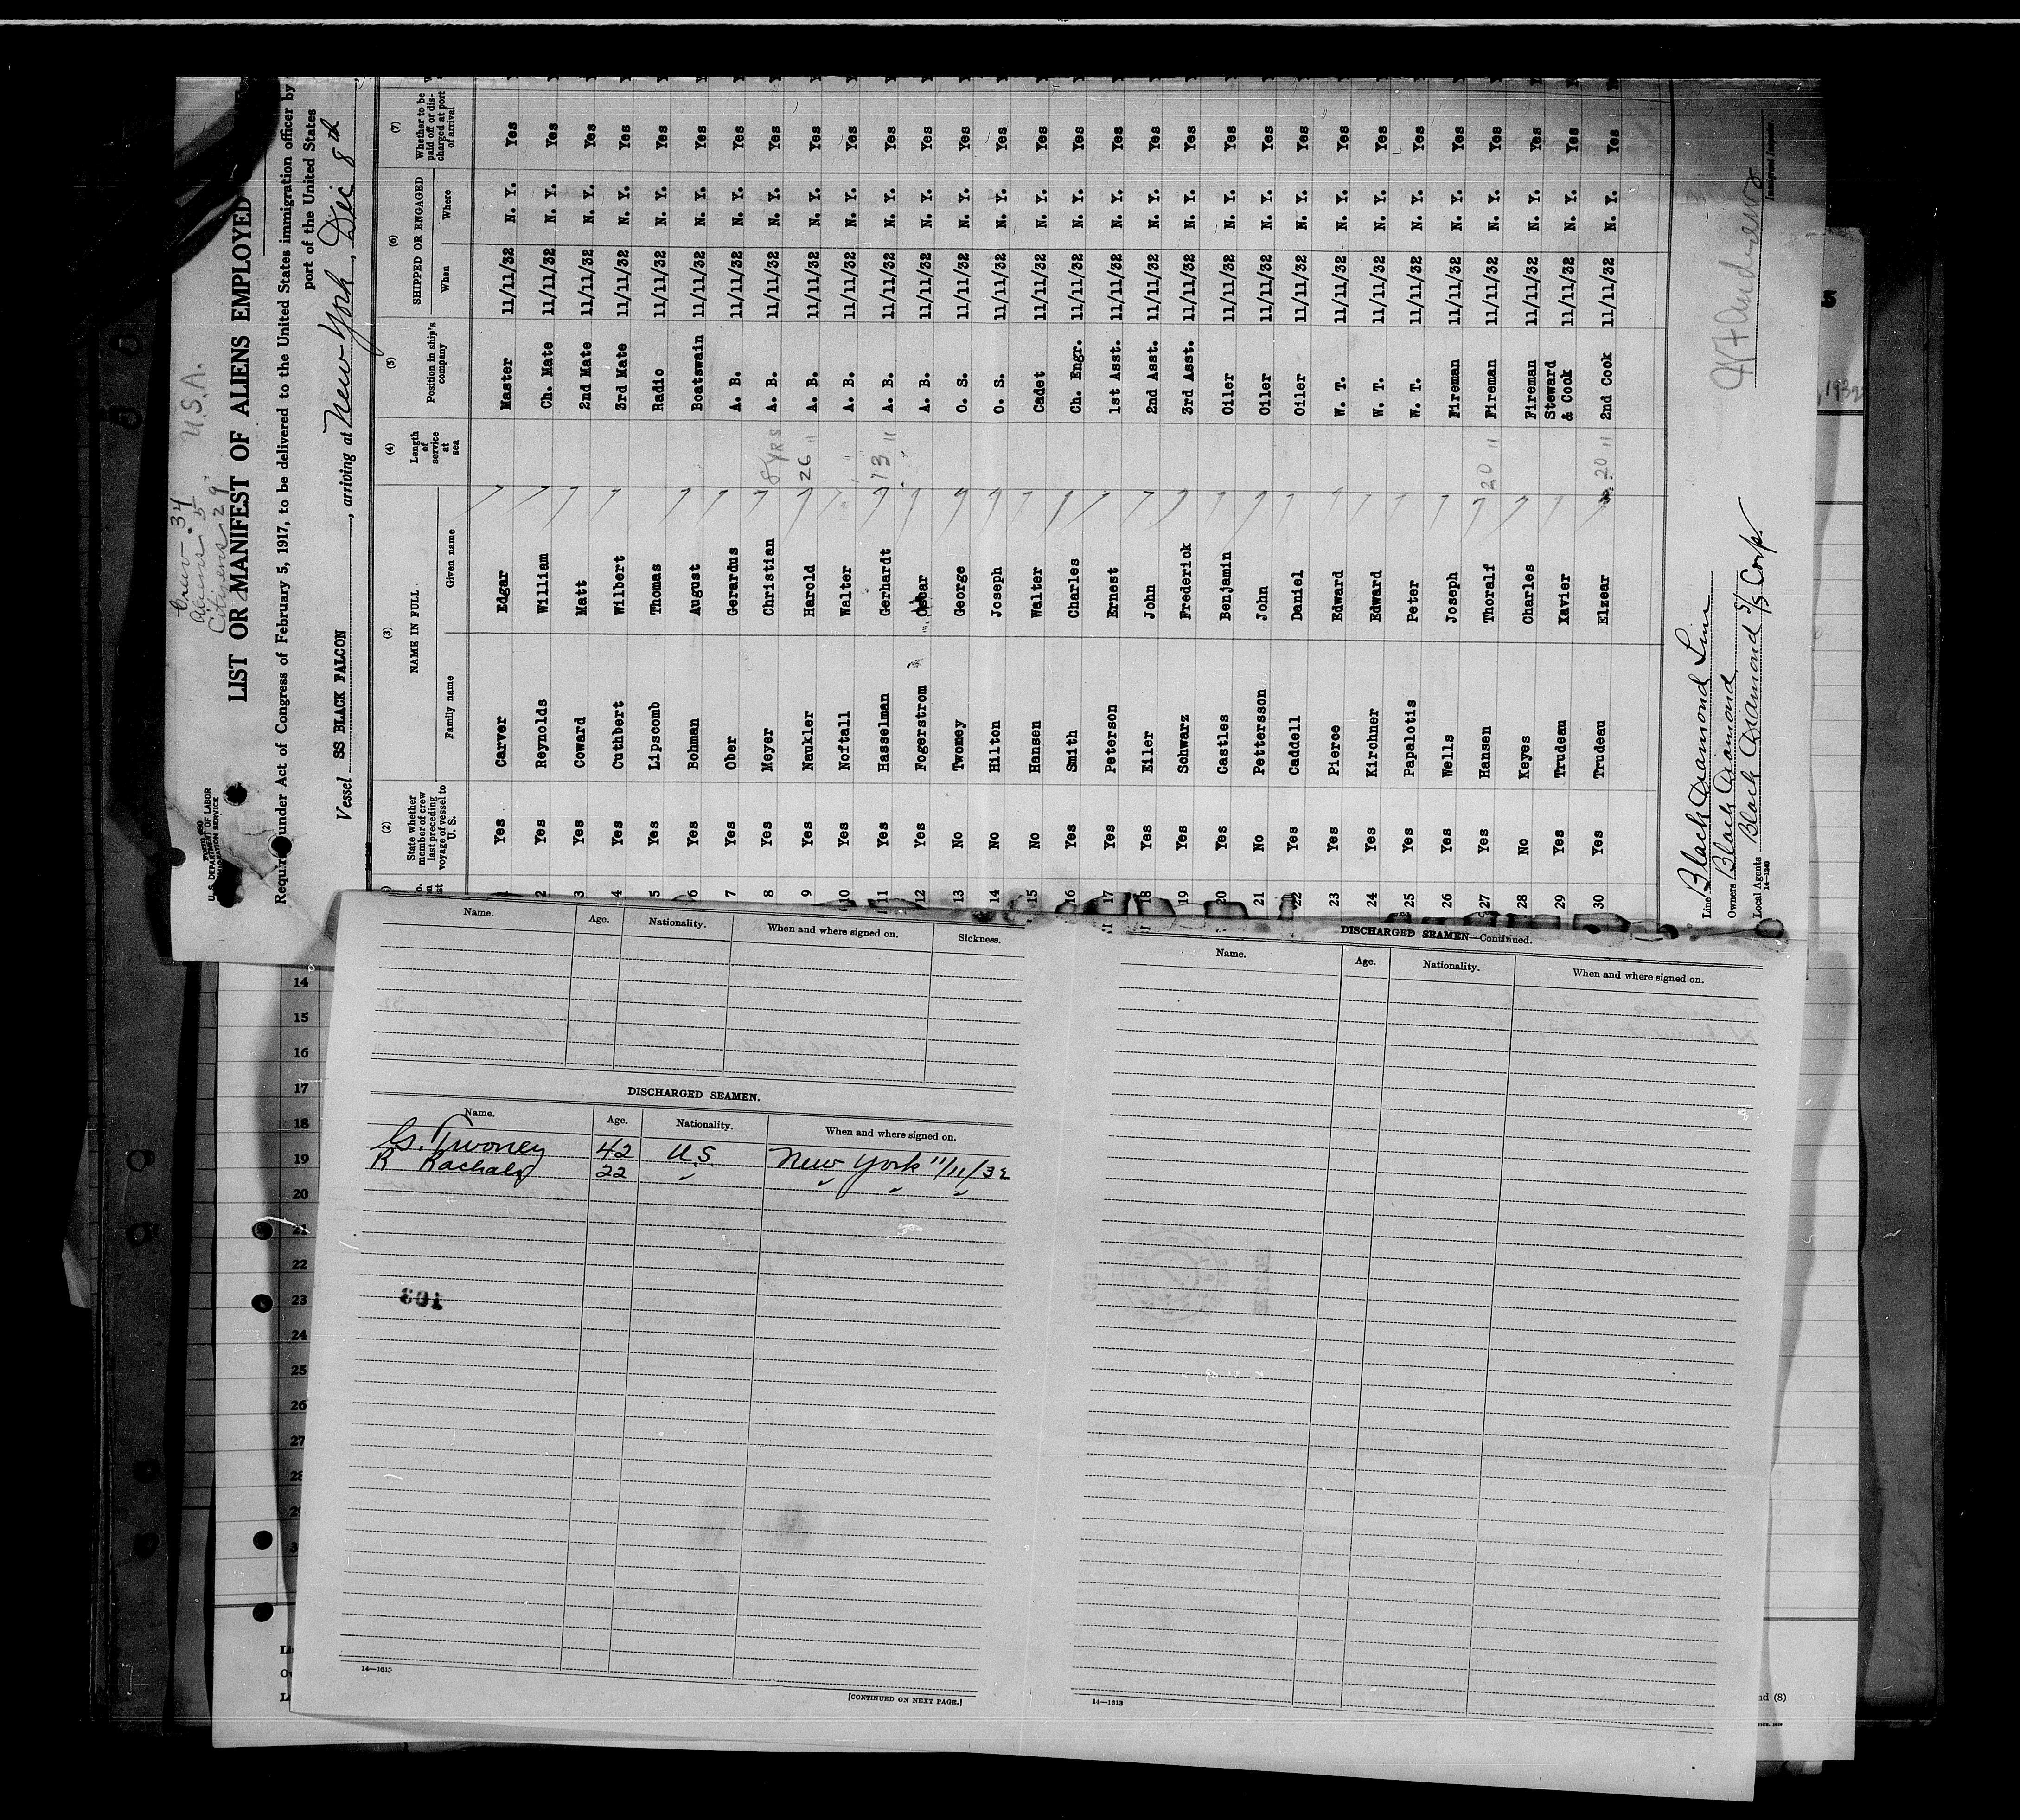 Crew. 34
Aliens. 5
Citizens 29
U.S.A.
U.S. DEPARTMENT OF LABOR
LIST OR MANIFEST OF ALIENS EMPLOYED
under Act of Congress of February 5, 1917, to be delivered to the United States immigration officer by
port of the United States
Vessel SS BLACK FALCON, arriving at New York, Dec 8th,
(2) (3) (4) (5) (6) (7)
State whether member of crew last preceding voyage of vessel to U. S. NAME IN FULL Length of service at sea Position in ship's company SHIPPED OR ENGAGED Whether to be paid off or discharged at port of arrival
Family name Given name When Where
1 Yes Carver Edgar Master 11/11/32 N. Y. Yes
2 Yes Reynolds William Ch. Mate 11/11/32 N. Y. Yes
3 Yes Coward Matt 2nd Mate 11/11/32 N. Y. Yes
4 Yes Cuthbert Wilbert 3rd Mate 11/11/32 N. Y. Yes
5 Yes Lipscomb Thomas Radio 11/11/32 N. Y. Yes
6 Yes Bohman August Boatswain 11/11/32 N. Y. Yes
7 Yes Ober Gerardus A. B. 11/11/32 N. Y. Yes
8 Yes Meyer Christian 8 YRS A. B. 11/11/32 N. Y. Yes
9 Yes Naukler Harold 26 " A. B. 11/11/32 N. Y. Yes
10 Yes Noftall Walter A. B. 11/11/32 N. Y. Yes
11 Yes Hasselman Gerhardt 13 " A. B. 11/11/32 N. Y. Yes
12 Yes Fogerstrom Oscar A. B. 11/11/32 N. Y. Yes
13 No Twomey George O. S. 11/11/32 N. Y. Yes
14 No Hilton Joseph O. S. 11/11/32 N. Y. Yes
15 No Hansen Walter Cadet 11/11/32 N. Y. Yes
16 Yes Smith Charles Ch. Engr. 11/11/32 N. Y. Yes
17 Yes Peterson Ernest 1st Asst. 11/11/32 N. Y. Yes
18 Yes Eiler John 2nd Asst. 11/11/32 N. Y. Yes
19 Yes Schwarz Frederick 3rd Asst. 11/11/32 N. Y. Yes
20 Yes Castles Benjamin Oiler 11/11/32 N. Y. Yes
21 No Pettersson John Oiler 11/11/32 N. Y. Yes
22 Yes Caddell Daniel Oiler 11/11/32 N. Y. Yes
23 Yes Pierce Edward W. T. 11/11/32 N. Y. Yes
24 Yes Kirchner Edward W. T. 11/11/32 N. Y. Yes
25 Yes Papalotis Peter W. T. 11/11/32 N. Y. Yes
26 Yes Wells Joseph Fireman 11/11/32 N. Y. Yes
27 Yes Hansen Thoralf 20 " Fireman 11/11/32 N. Y. Yes
28 No Keyes Charles Fireman 11/11/32 N. Y. Yes
29 Yes Trudeau Xavier Steward & Cook 11/11/32 N. Y. Yes
30 Yes Trudeau Elzear 20 " 2nd Cook 11/11/32 N. Y. Yes
Line Black Diamond Line
Owners Black Diamond
Local Agents Black Diamond S/S Corp.
14—1240
Immigrant Inspector.
Name. Age. Nationality. When and where signed on. Sickness.
DISCHARGED SEAMEN.
Name. Age. Nationality. When and where signed on.
G. Twomey 42 U.S. New York 11/11/32
R 22 " " " "
103
14—1613
[CONTINUED ON NEXT PAGE.]
DISCHARGED SEAMEN—Continued.
Name. Age. Nationality. When and where signed on.
14—1613
14
15
16
17
18
19
20
21
22
23
24
25
26
27
28
5
, 1932
nd (8)